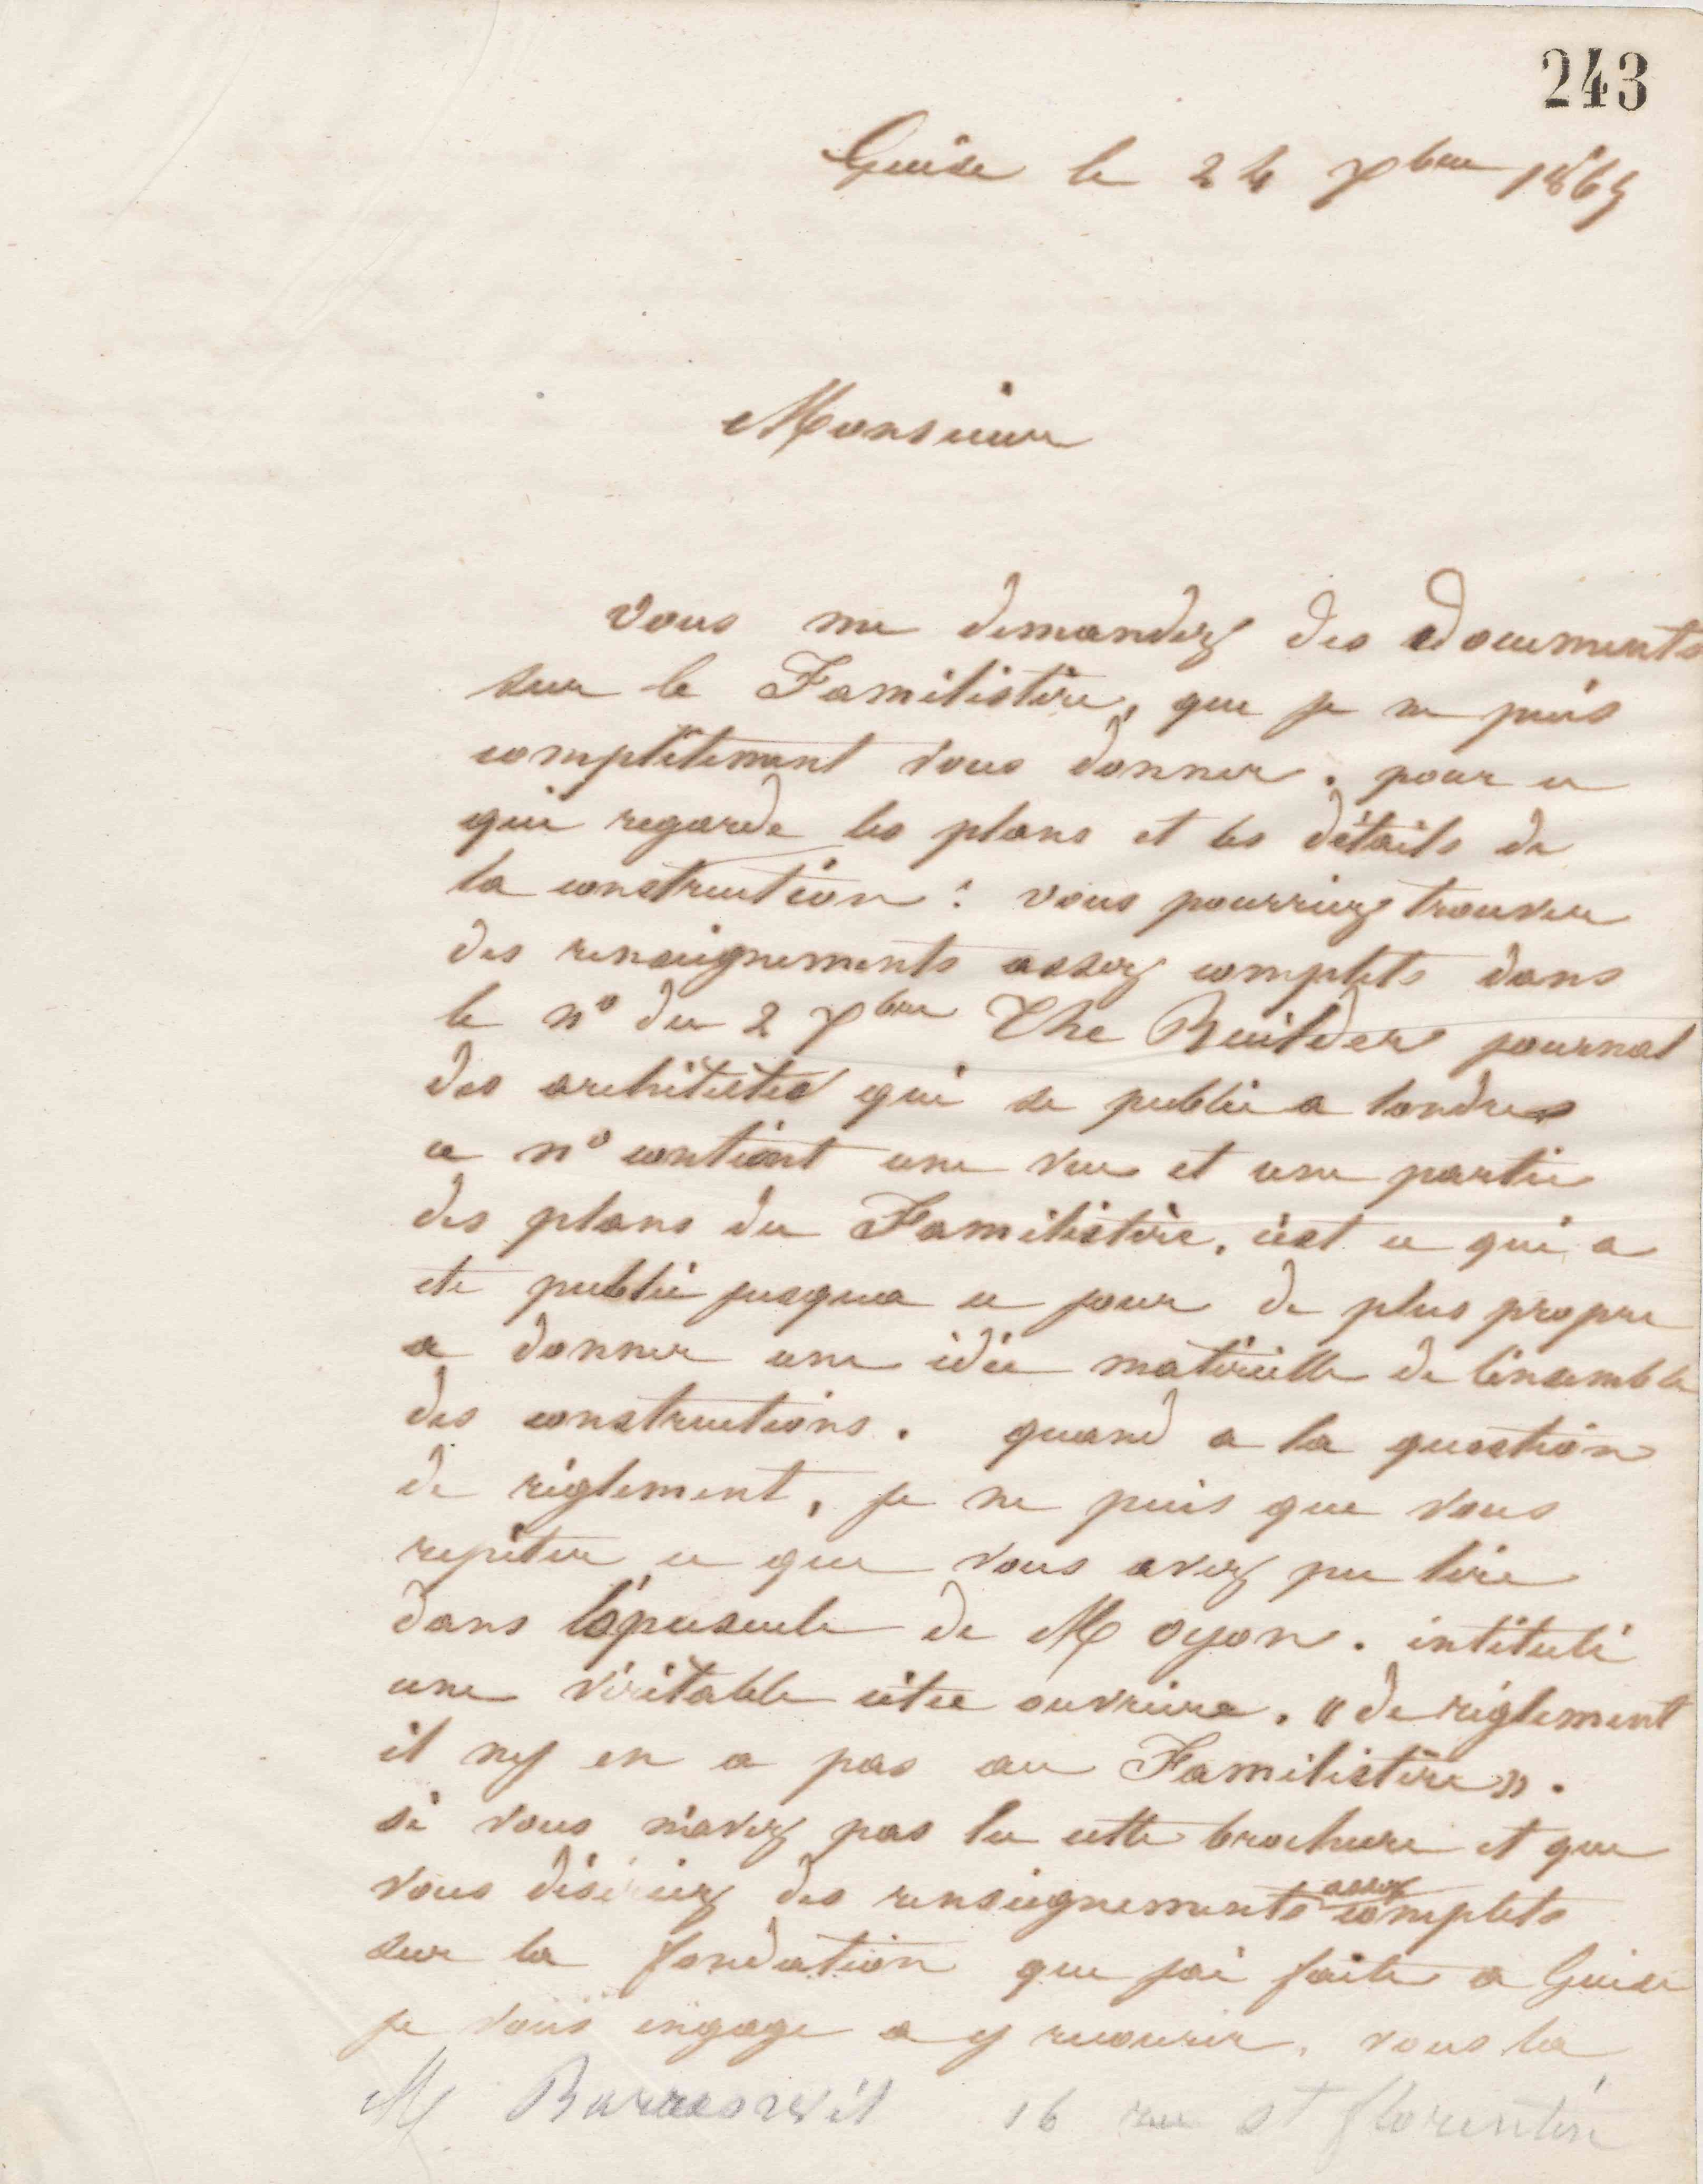 243
Guise le 24 7bre 1865
Monsieur
vous me demandez des documents
sur le Familistère, que je ne puis
complètement vous donner. pour ce
qui regarde les plans et les détails de
la construction : vous pourriez trouver
des renseignements assez complets dans
le n° du 2 7bre The Builder journal
des architectes qui se publie a londres
ce n° contient une vue et une partie
des plans du Familistère. c'est ce qui a
ete publié jusqua ce jour de plus propre
a donner une idée matérielle de l'ensemble
des constructions. quand a la question
de règlement, je ne puis que vous
repéter ce que vous avez pu lire
dans l'opuscule de M oyon. intitulé
une véritable citée ouvrière. "de règlement
il ny en a pas au Familistère".
si vous n'avez pas lu cette brochure et que
vous désiriez des renseignements assez complets
sur la fondation que jai faite a Guise
je vous engage a y recourir. vous la
M. Barreswil 16 rue st florentin